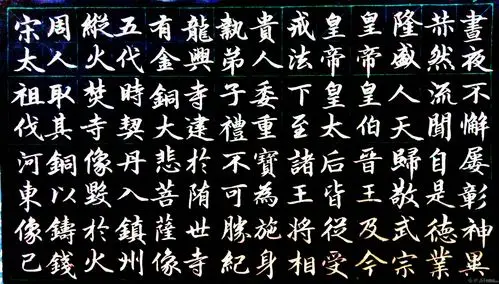 晝夜不懈屢彰神異
赫然流聞自是德業
隆盛人天歸敬武宗
皇帝皇伯晉王及今
皇帝皇太后皆從受
戒法下至諸王將相
貴人委重寶為施身
執弟子禮不可勝紀
龍興寺建於隋世寺
有金銅大悲菩薩像
五代時契丹入鎮州
縱火焚寺像毀於火
周人取其銅以鑄錢
宋太祖伐河東像已